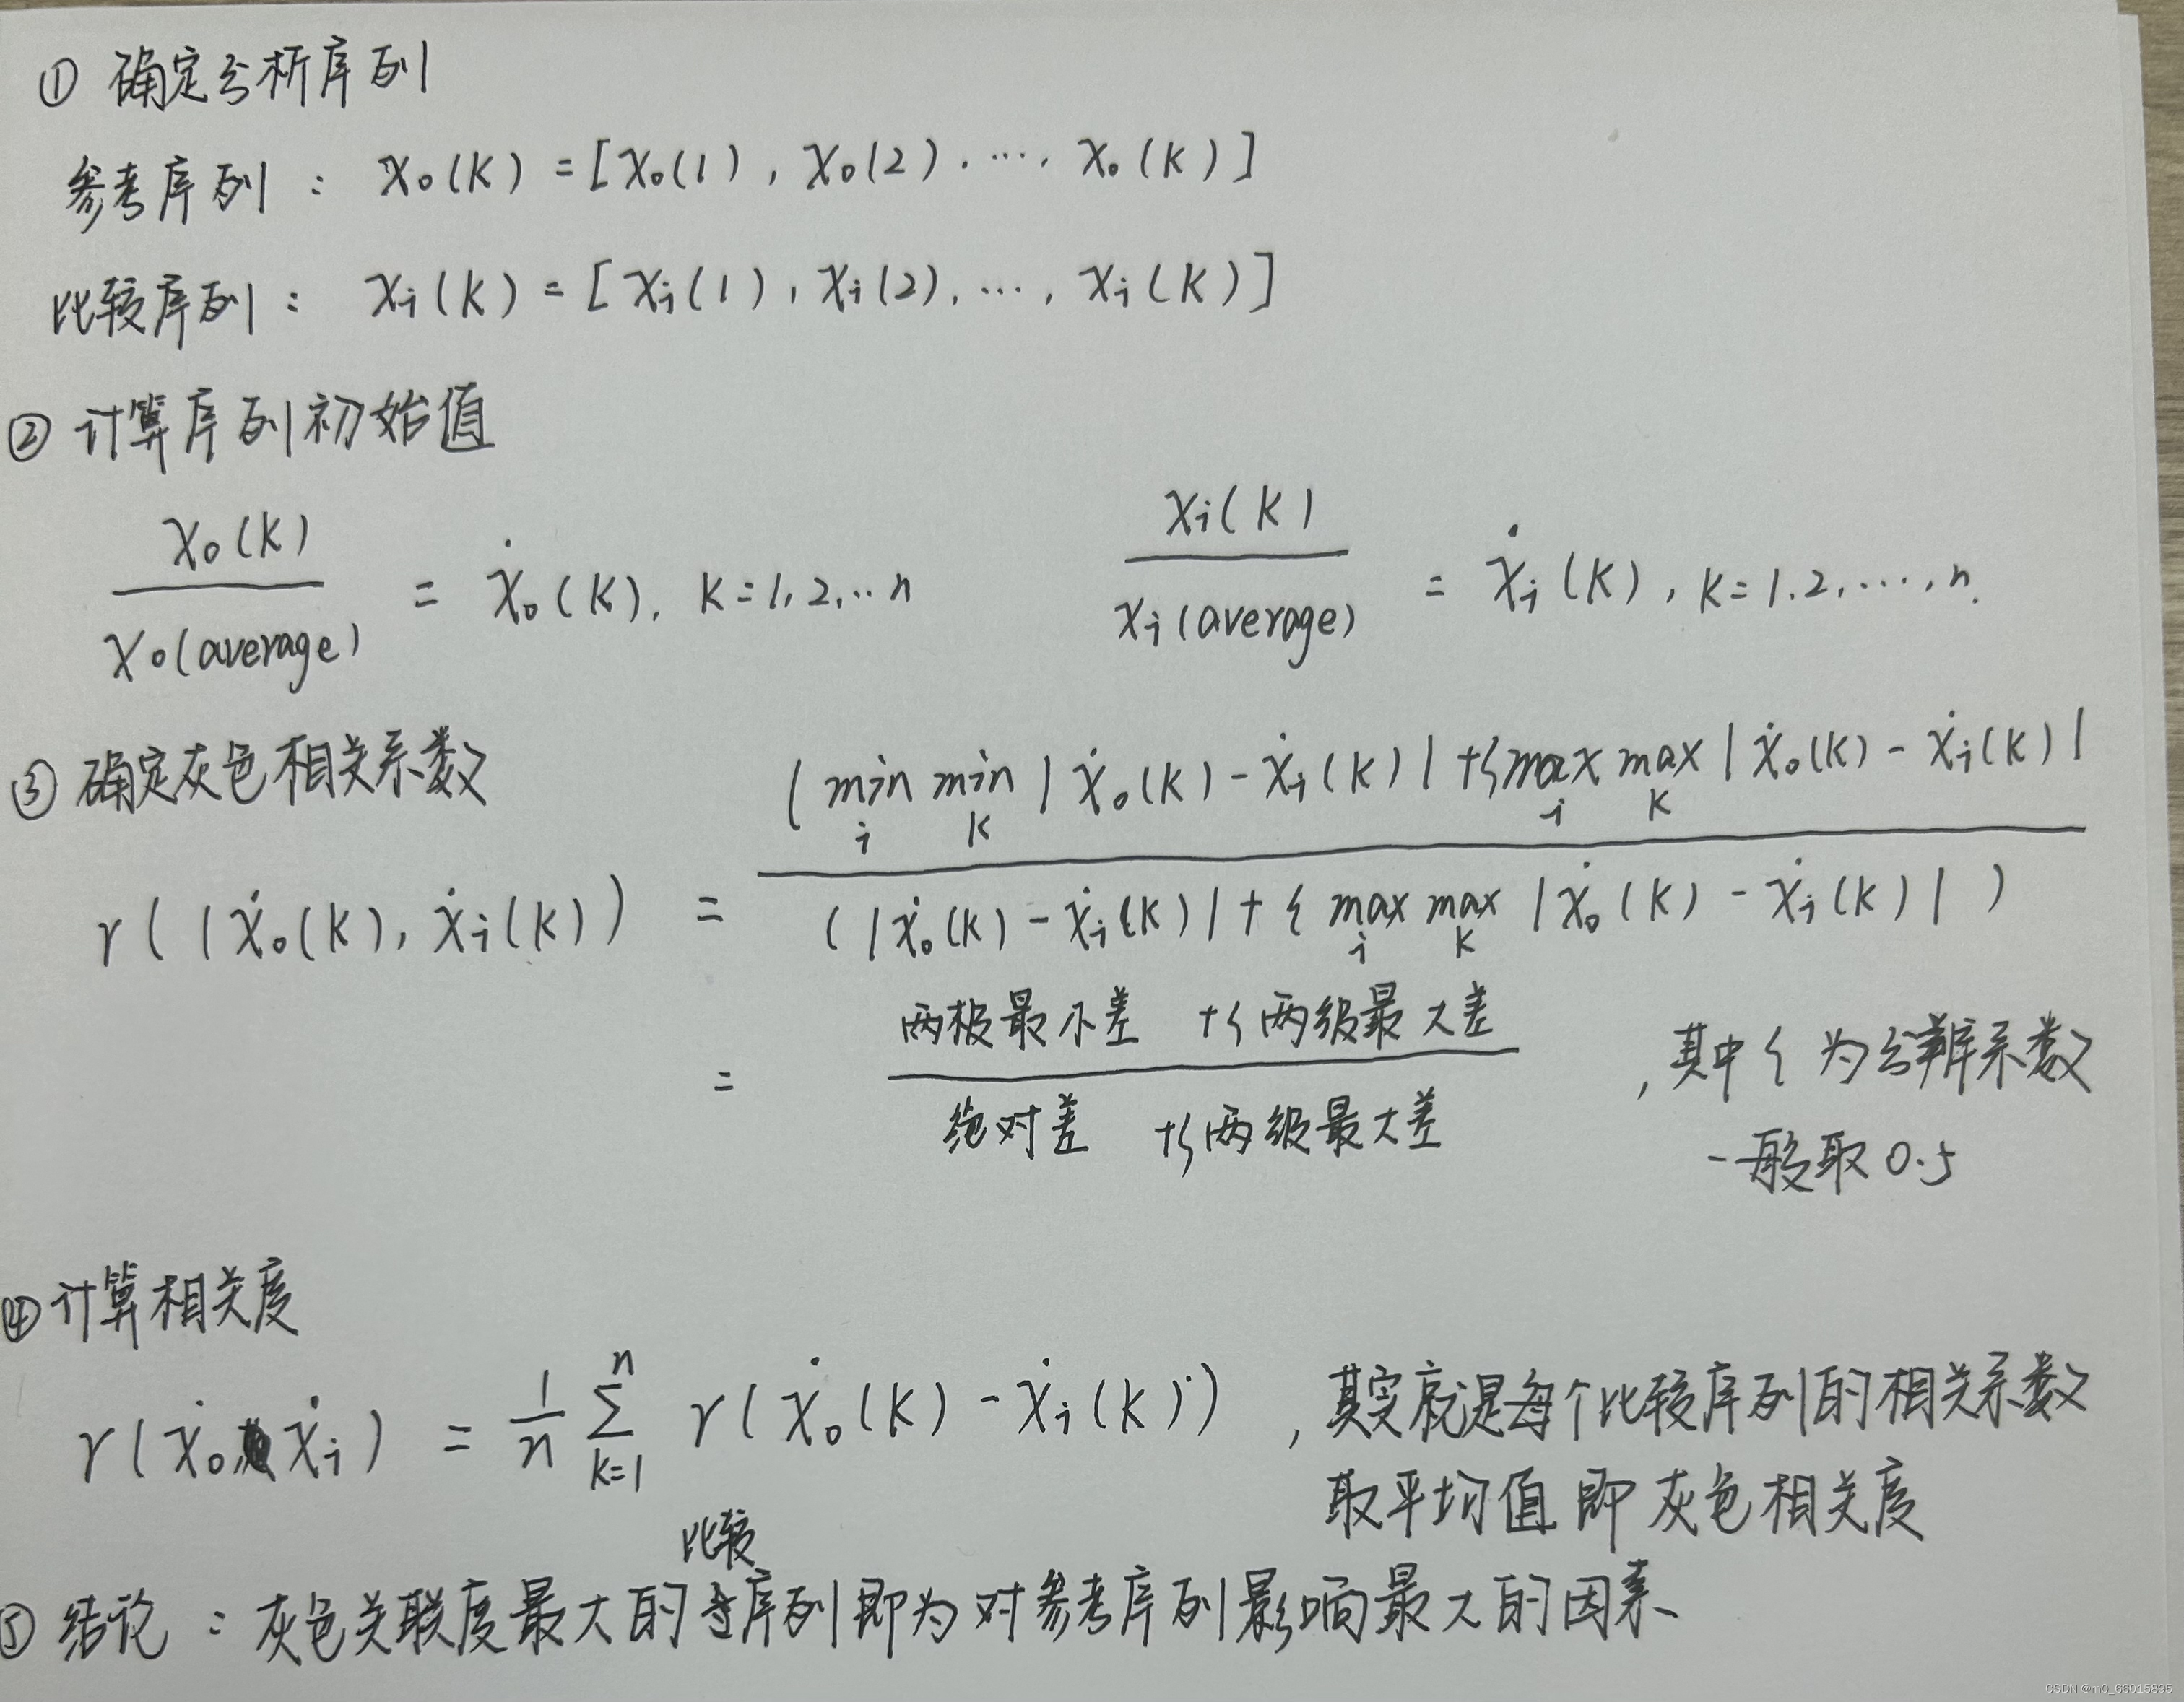 ① 确定分析序列
参考序列： x₀(k) = [x₀(1), x₀(2), …, x₀(k)]
比较序列： xᵢ(k) = [xᵢ(1), xᵢ(2), …, xᵢ(k)]
② 计算序列初始值
x₀(k) / x₀(average) = ẋ₀(k), k=1,2,…n    xᵢ(k) / xᵢ(average) = ẋᵢ(k), k=1,2,…,n.
③ 确定灰色相关系数
r((ẋ₀(k), ẋᵢ(k)) = (min_i min_k |ẋ₀(k) - ẋᵢ(k)| + ξ max_i max_k |ẋ₀(k) - ẋᵢ(k)| / (|ẋ₀(k) - ẋᵢ(k)| + ξ max_i max_k |ẋ₀(k) - ẋᵢ(k)|)
= 两极最小差 + ξ两级最大差 / 绝对差 + ξ两级最大差 ，其中 ξ 为分辨系数
一般取 0.5
④ 计算相关度
r(ẋ₀, ẋᵢ) = 1/n ∑_{k=1}^{n} r(ẋ₀(k) - ẋᵢ(k)) ，其实就是每个比较序列的相关系数
取平均值 即 灰色相关度
比较
⑤ 结论：灰色关联度最大的序列即为对参考序列影响最大的因素
CSDN @m0_66015895